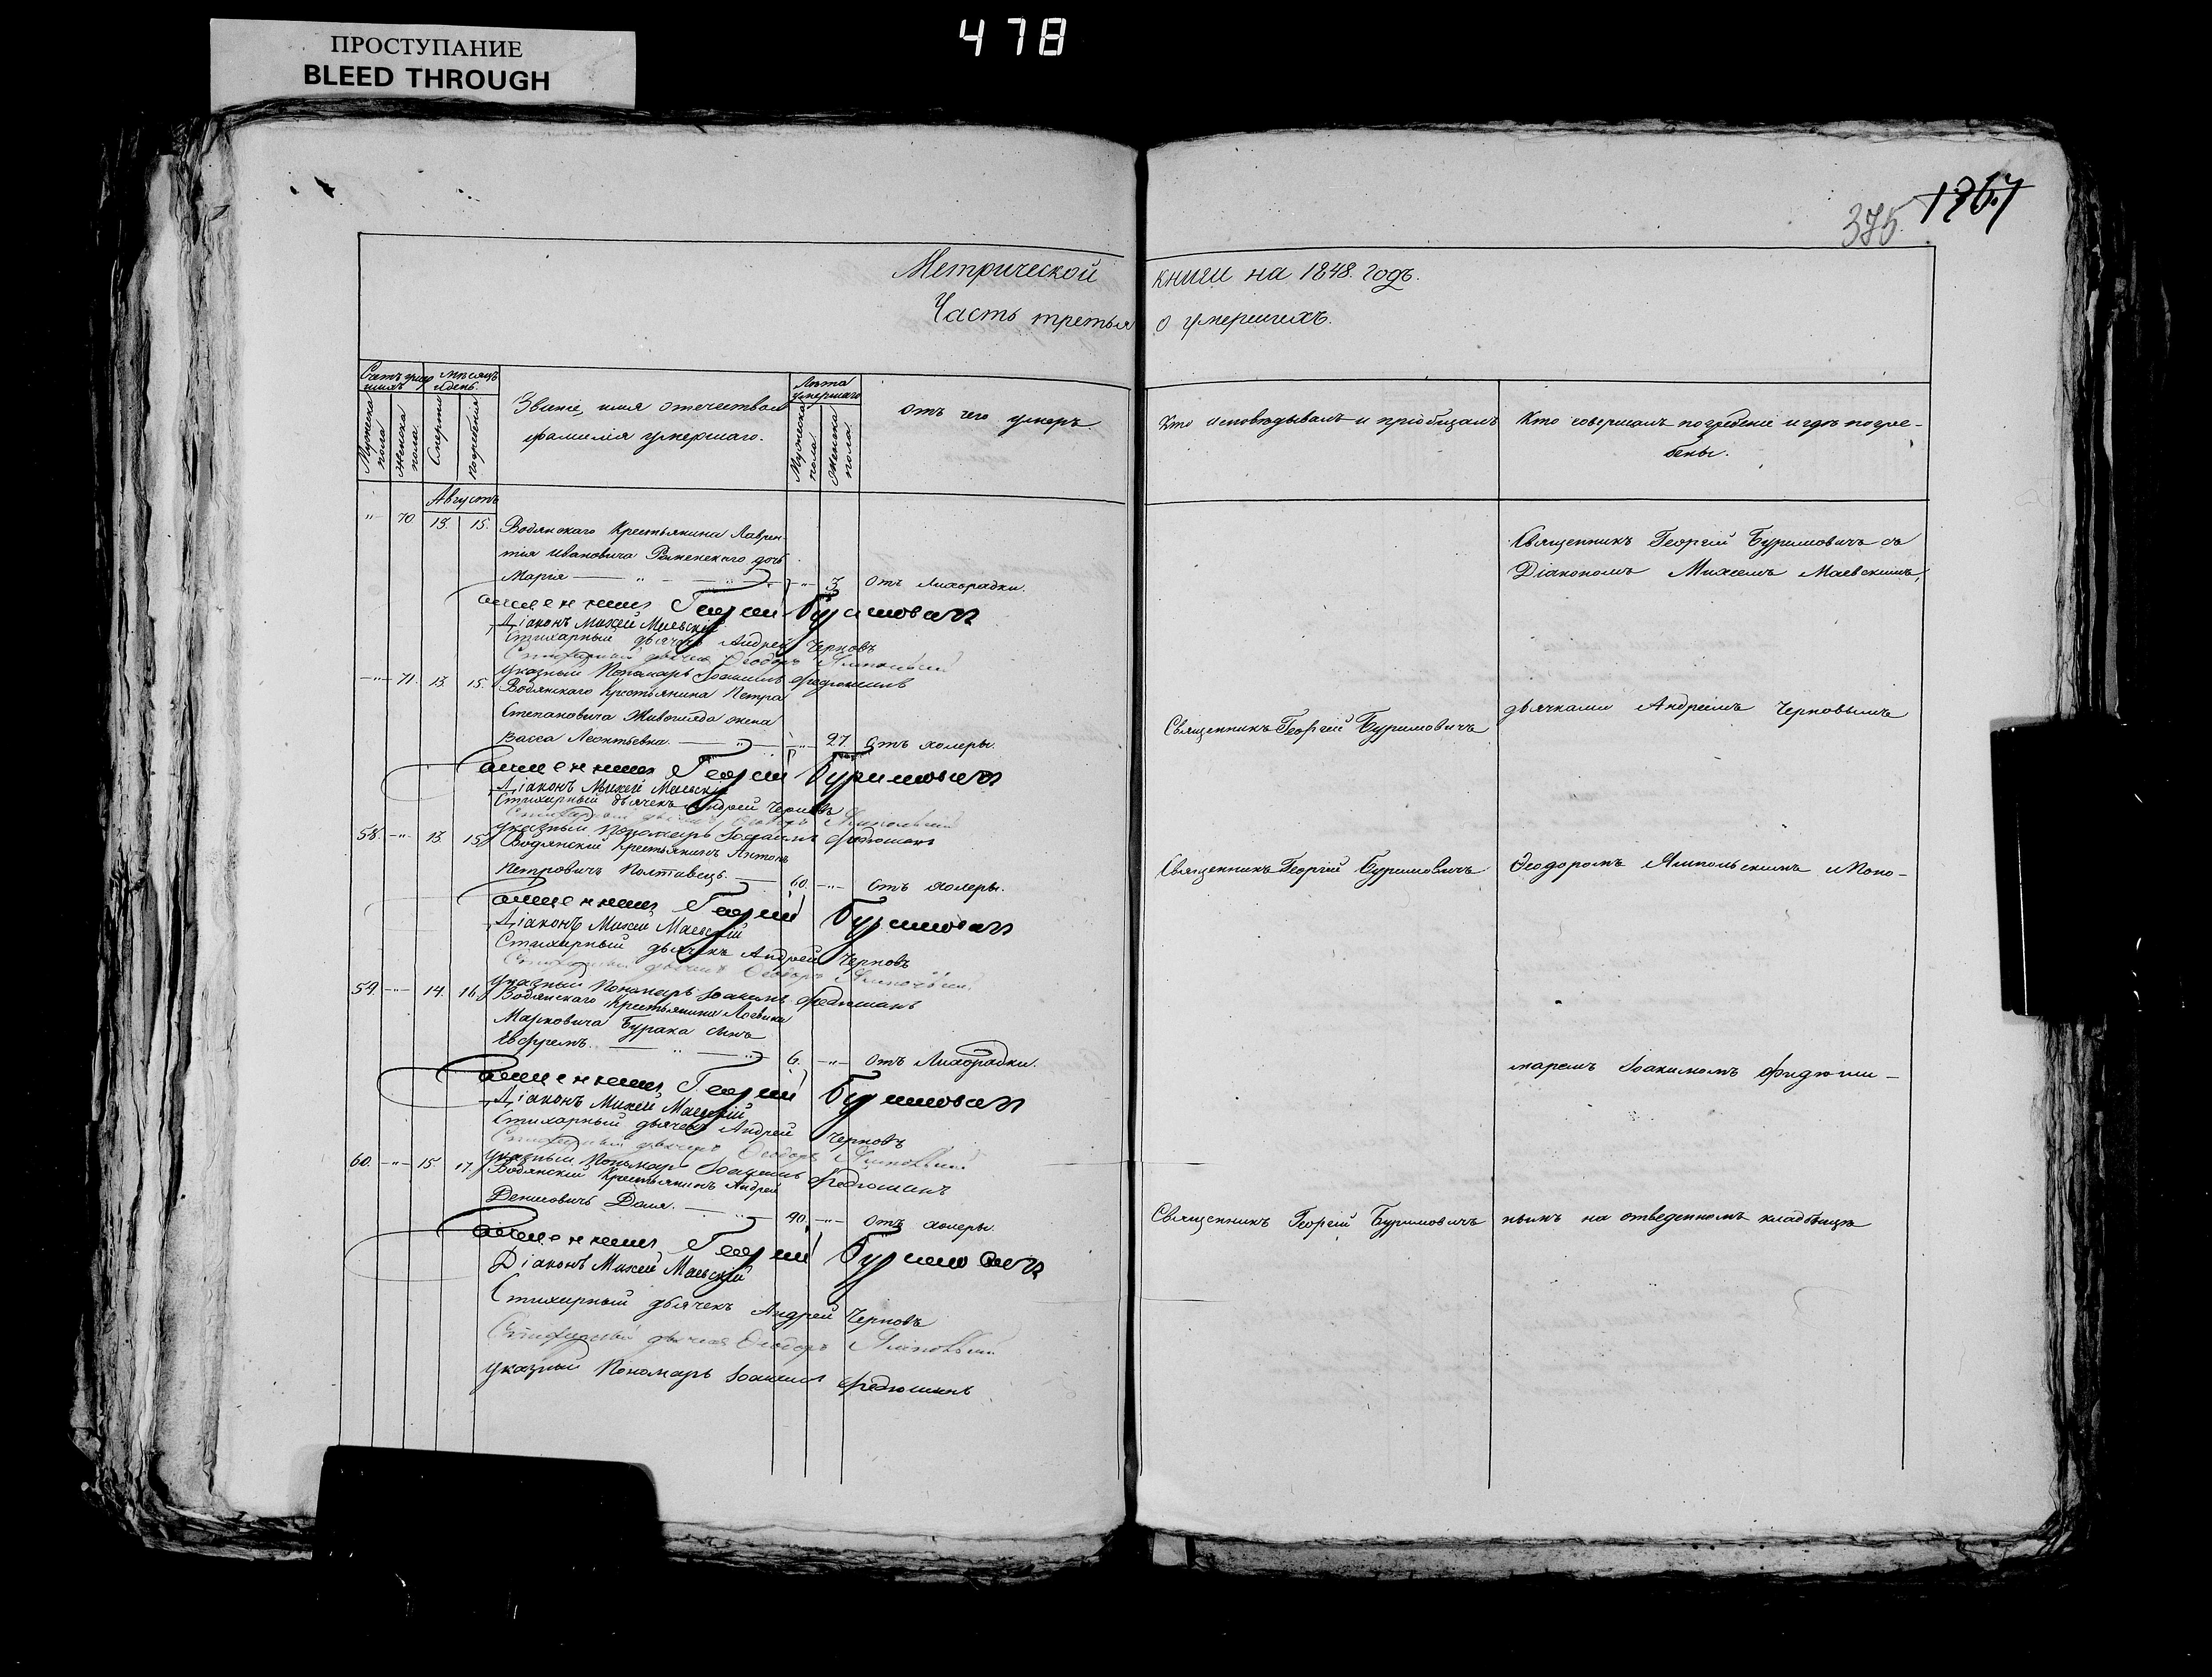 ПРОСТУПАНИЕ
BLEED THROUGH
478
1867
375.
Метрической книги на 1848. годъ.
Часть третья о умершихъ.
Счетъ умер
шихъ
Мужеска
пола
Женска
пола.
Мѣсяцъ
и день.
Смерти
Погребенія
Званіе, имя отечество и
фамилія умершаго.
Лѣта
умершаго
Мужеска
пола
Женска
пола
отъ чего умеръ
Кто исповѣдывалъ и пріобщалъ
Кто совершалъ погребеніе и гдѣ погре-
бены.
Августъ
-"- 70 13. 15. Водянскаго Крестьянина Лаврен
тія Ивановича дочь
Марія -"- 3 отъ Лихорадки.
Священникъ Георгій Буримовичъ
Діаконъ Михей Маевскій
Стихарный дьячекъ Андрей Черновъ
Стихарный дьячекъ Ѳеодоръ Ямпольскій
Указный Пономарь Іоакимъ Федюшинъ
-"- 71. 13. 15. Водянскаго Крестьянина Петра
Степановича Живогляда жена
Васса Леонтьевна. -"- 27. отъ холеры.
Священникъ Георгій Буримовичъ
Діаконъ Михей Маевскій
Стихарный дьячекъ Андрей Черновъ
Стихарный дьячекъ Ѳеодоръ Ямпольскій
Указный Пономарь Іоакимъ Федюшинъ
58. -"- 13. 15. Водянскій Крестьянинъ Антонъ
Петровичъ Полтавецъ. 60. -"- отъ холеры.
Священникъ Георгій Буримовичъ
Діаконъ Михей Маевскій
Стихарный дьячекъ Андрей Черновъ
Стихарный дьячекъ Ѳеодоръ Ямпольскій
Указный Пономарь Іоакимъ Федюшинъ
59. -"- 14. 16. Водянскаго Крестьянина
Марковича Бурака сынъ
Ефремъ. 6. -"- отъ Лихорадки.
Священникъ Георгій Буримовичъ
Діаконъ Михей Маевскій
Стихарный дьячекъ Андрей Черновъ
Стихарный дьячекъ Ѳеодоръ Ямпольскій
Указный Пономарь Іоакимъ Федюшинъ
60. -"- 15. 17. Водянскій Крестьянинъ Андрей
Денисовичъ 90. -"- отъ холеры.
Священникъ Георгій Буримовичъ
Діаконъ Михей Маевскій
Стихарный дьячекъ Андрей Черновъ
Стихарный дьячекъ Ѳеодоръ Ямпольскій
Указный Пономарь Іоакимъ Федюшинъ
Священникъ Георгій Буримовичъ
Священникъ Георгій Буримовичъ
Священникъ Георгій Буримовичъ
Священникъ Георгій Буримовичъ съ
Діакономъ Михеемъ Маевскимъ,
дьячками Андреемъ Черновымъ
Ѳеодоромъ Ямпольскимъ и Поно-
маремъ Іоакимомъ Фидюши-
нымъ на отведенномъ кладбищѣ